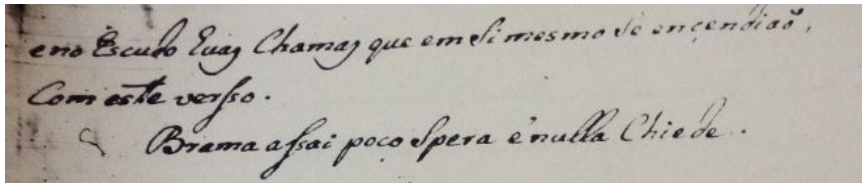 eno Escudo huas Chamas que em si mesmo se encendiaõ,
Com este verso.
Brama assai poco spera e nulla Chiede.